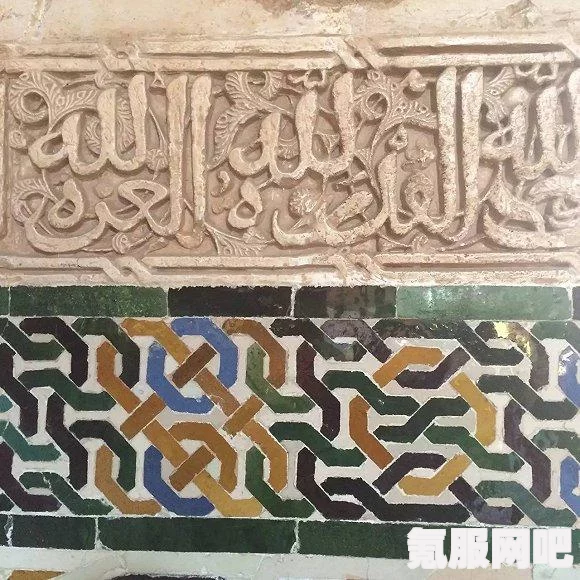 لله القدرة لله العزة لله
氪服网吧